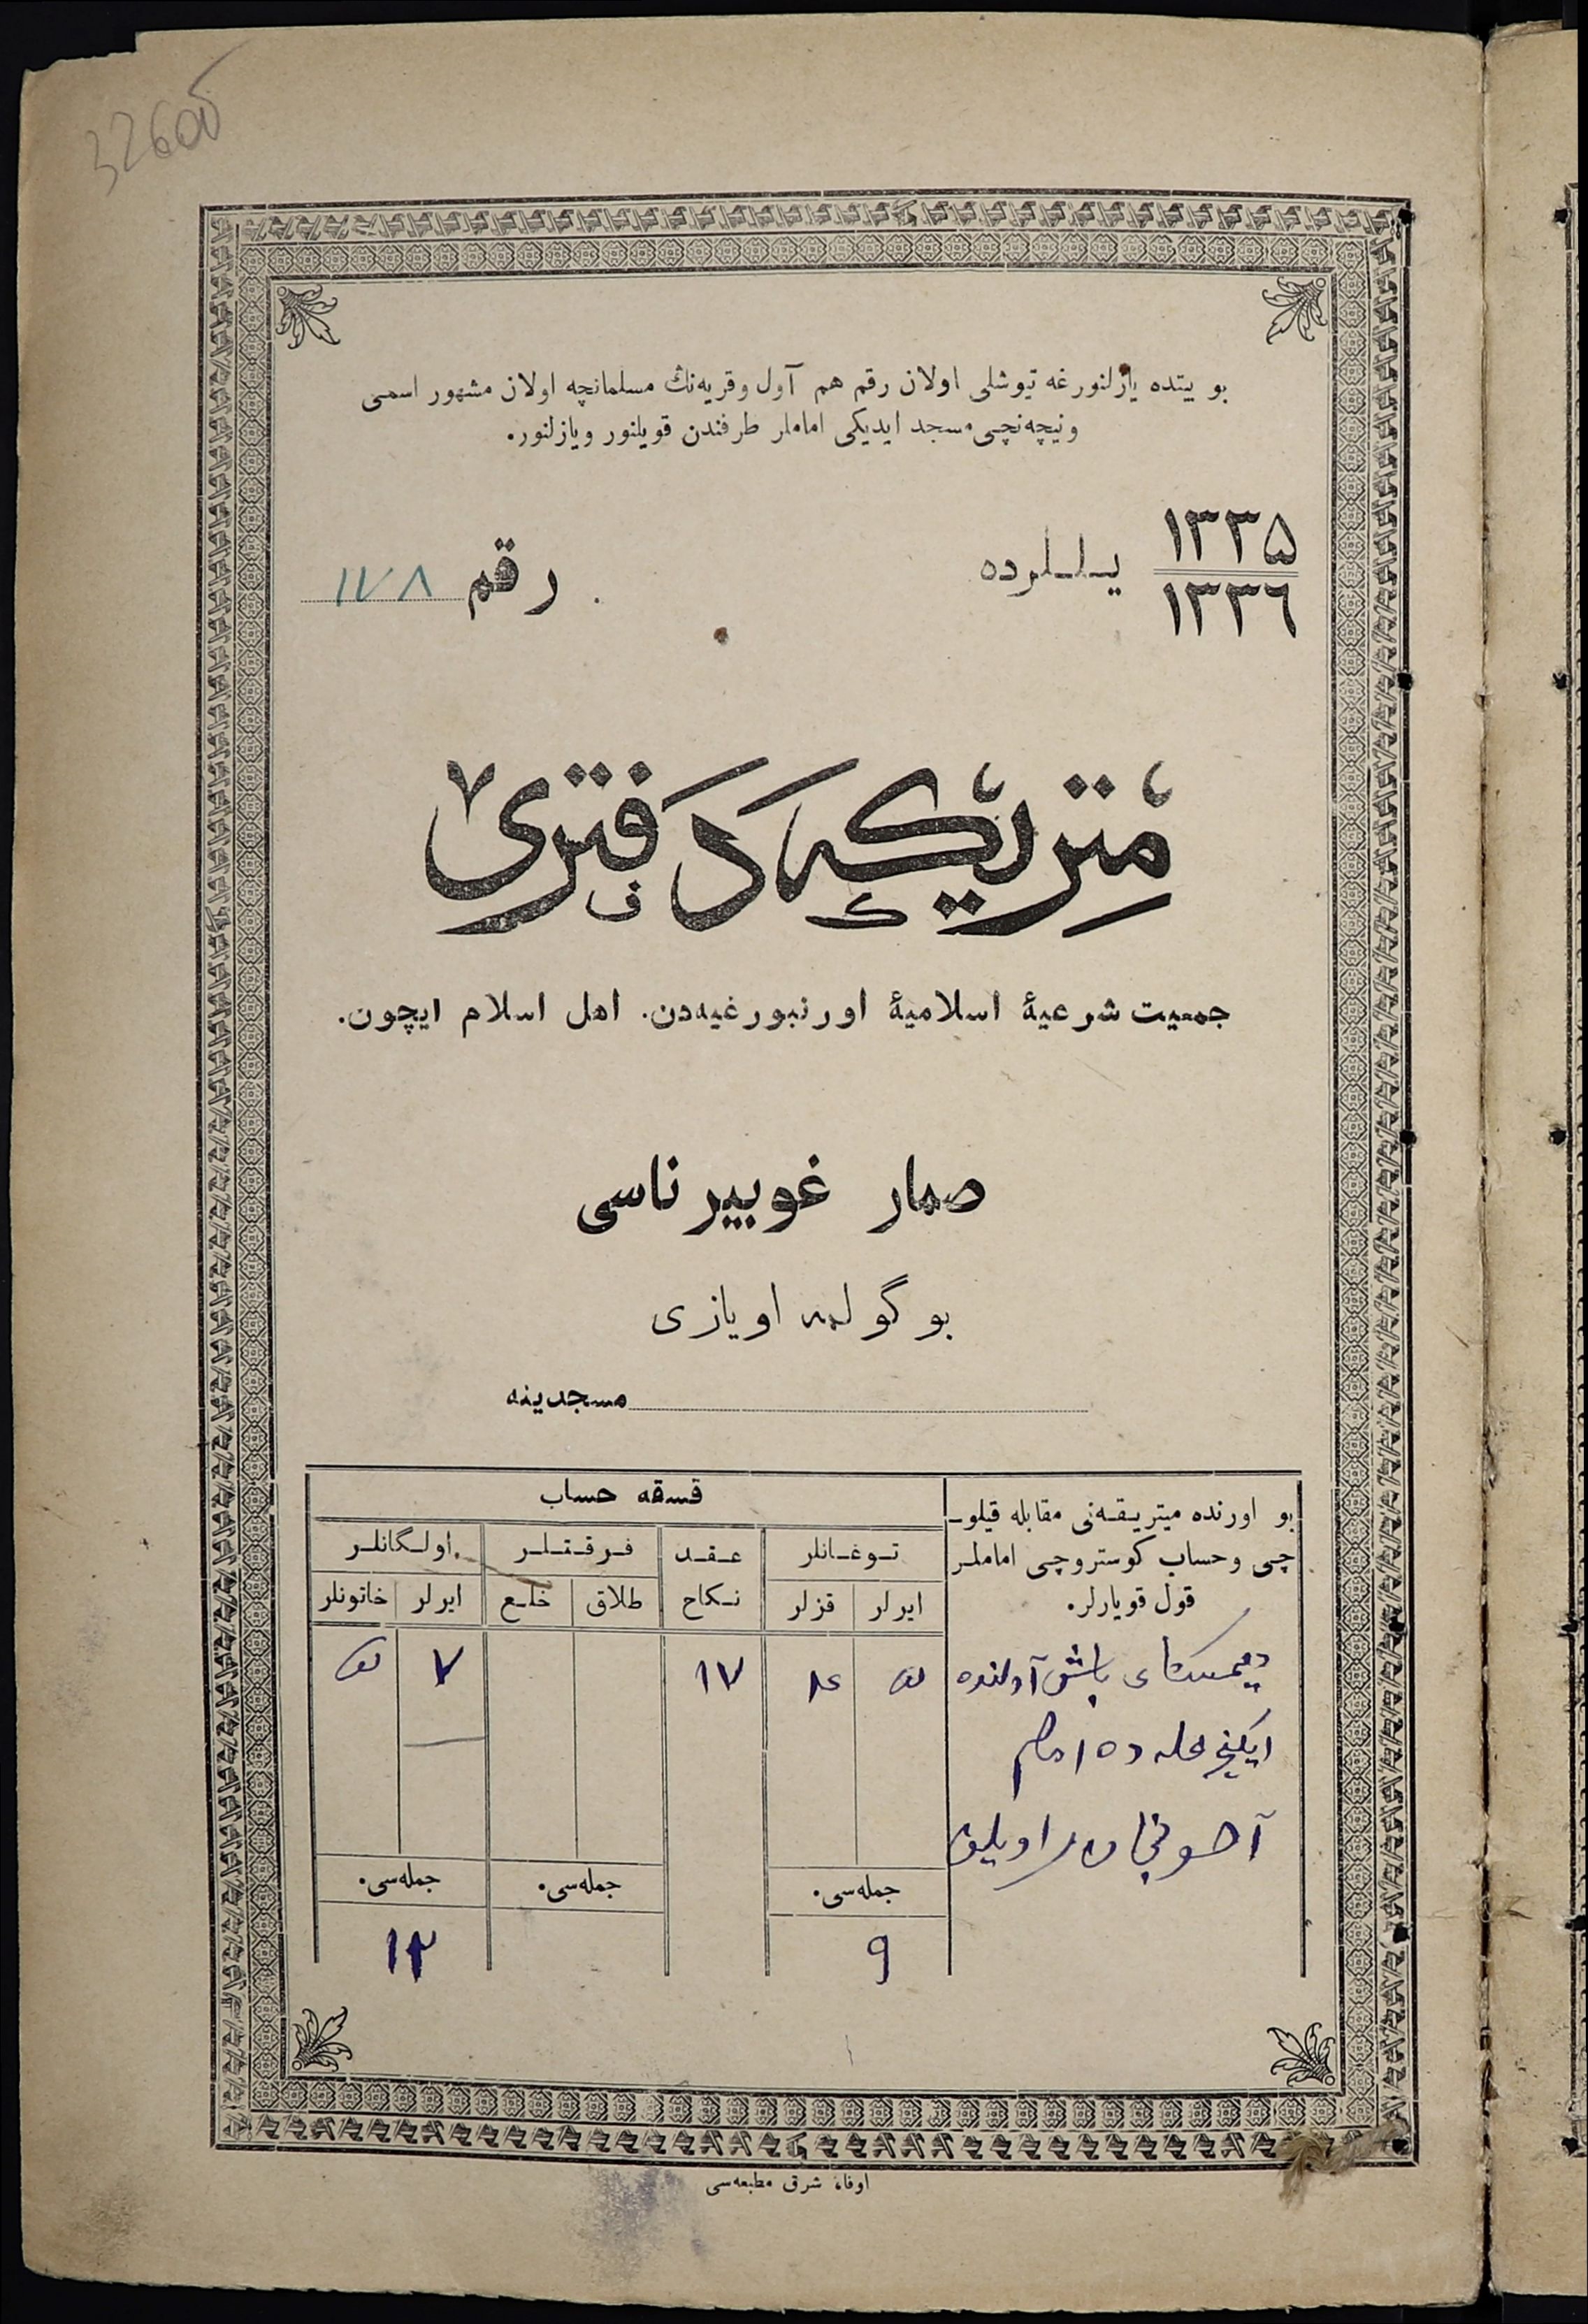 326об
بو بیتده یازلنورغه تیوشلی اولان رقم هم آول وقریه‌نڭ مسلمانچه اولان مشهور اسمی
ونیچه‌نچی مسجد ایدیکی اماملر طرفندن قویلنور ویازلنور.
۱۳۳۵
۱۳۳٦
یـلـلرده
رقم ۱۷۸
متریکه دفتری
جمعیت شرعیۀ اسلامیۀ اورنبورغیه‌دن. اهل اسلام ایچون.
صمار غوبیرناسی
بوگولمه اویازی
مسجدینه
بو اورنده میتریـقـه‌نی مقابله قیلوـ
چی وحساب کوستروچی اماملـر
قول قویارلر.
قسقه حساب
تـوغـانلر
عـقـد
نـکاح
فـرقـتـلـر
اولـگانلـر
ایرلر
قزلر
طلاق
خلـع
ایرلر
خاتونلر
باش آولنده
امام
۱۷
۷
جمله‌سی.
جمله‌سی.
جمله‌سی.
۹
۱۲
اوفاده شرق مطبعه‌سی